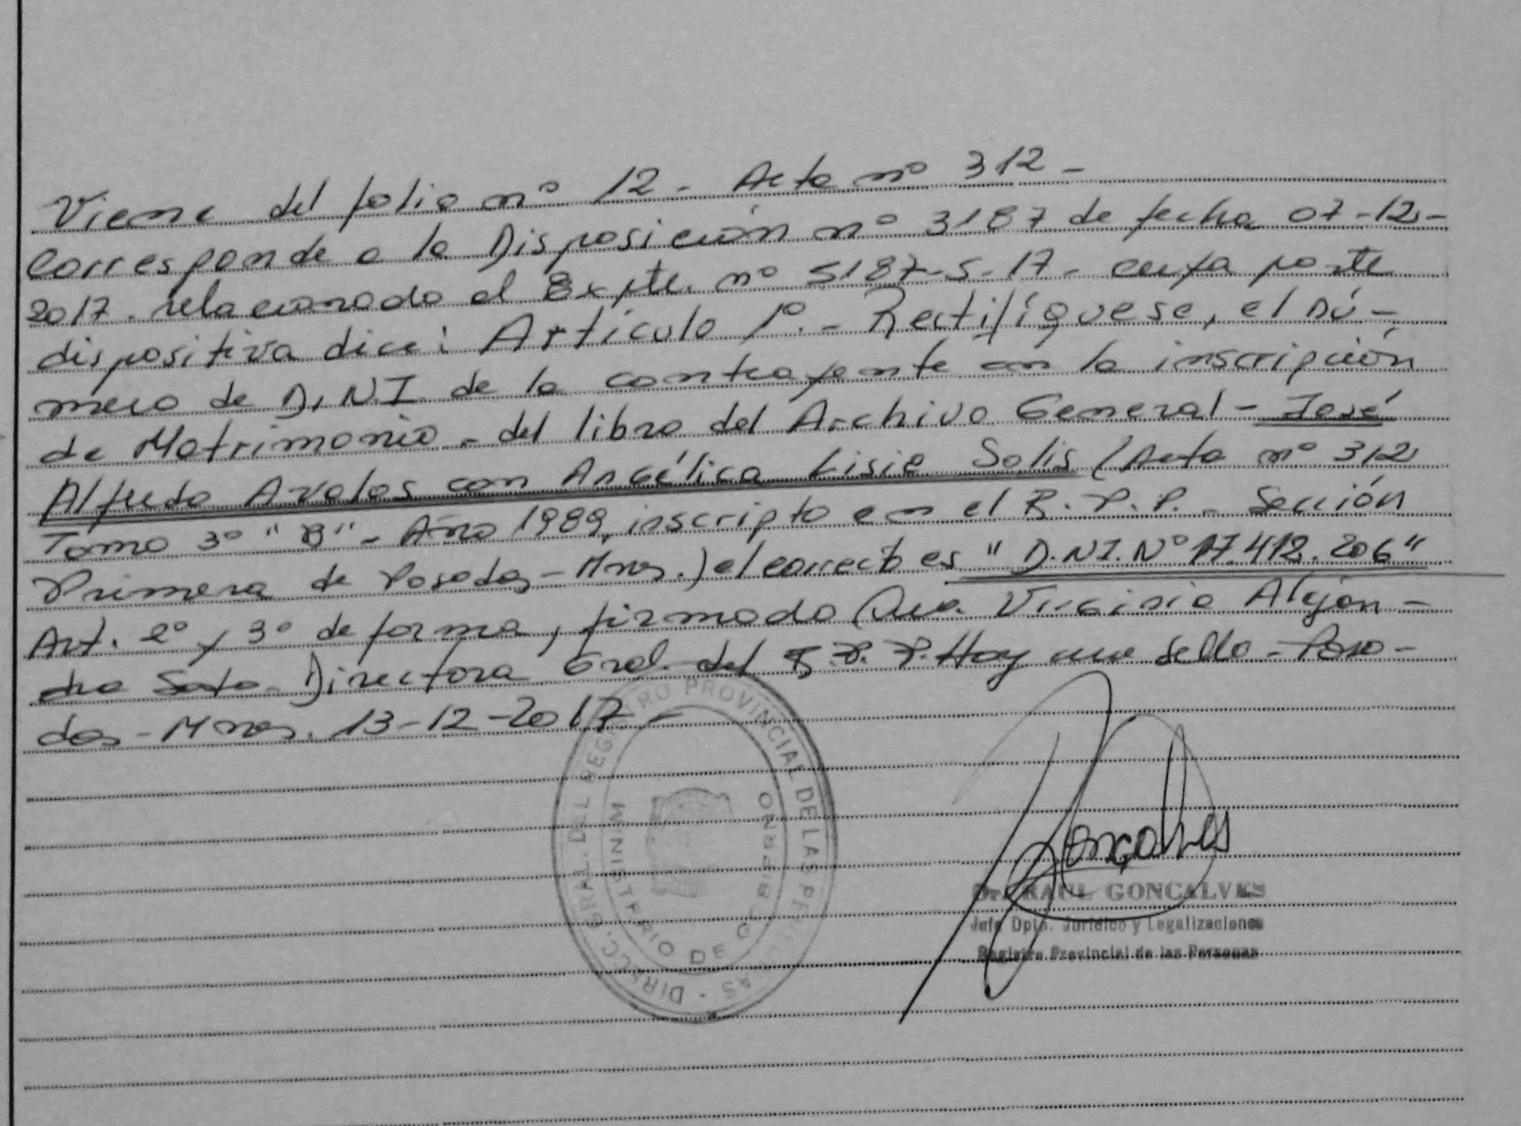 Viene del folio nº 12 - Acta nº 312 -
Corresponde a la Disposición nº 3187 de fecha 07-12-
2017. relacionado al Expte. nº 5187-S-17- cuya parte
dispositiva dice: Artículo 1º.- Rectifíquese, el Nú-
mero de D.N.I. de la contrayente en la inscripción
de Matrimonio - del libro del Archivo General - José
Alfredo Avalos con Angélica Lisie Solis (Acta nº 312
Tomo 3º "B" - Año 1989, inscripto en el R.P.P. - Sección
Primera de Posadas - Mnes.) el correcto es "D.N.I. Nº 17.412.206"
Art. 2º y 3º de forma, firmado Dra. Virginia Alejan-
dra Soto. Directora Gral. del R.P.P. Hay un sello - Posa-
das - Mnes. 13-12-2017 -
DIRECC. GRAL. DEL REGISTRO PROVINCIAL DE LAS PERSONAS
MINISTERIO DE GOBIERNO
Goncalves
Dr. RAUL GONCALVES
Jefe Dpto. Jurídico y Legalizaciones
Registro Provincial de las Personas